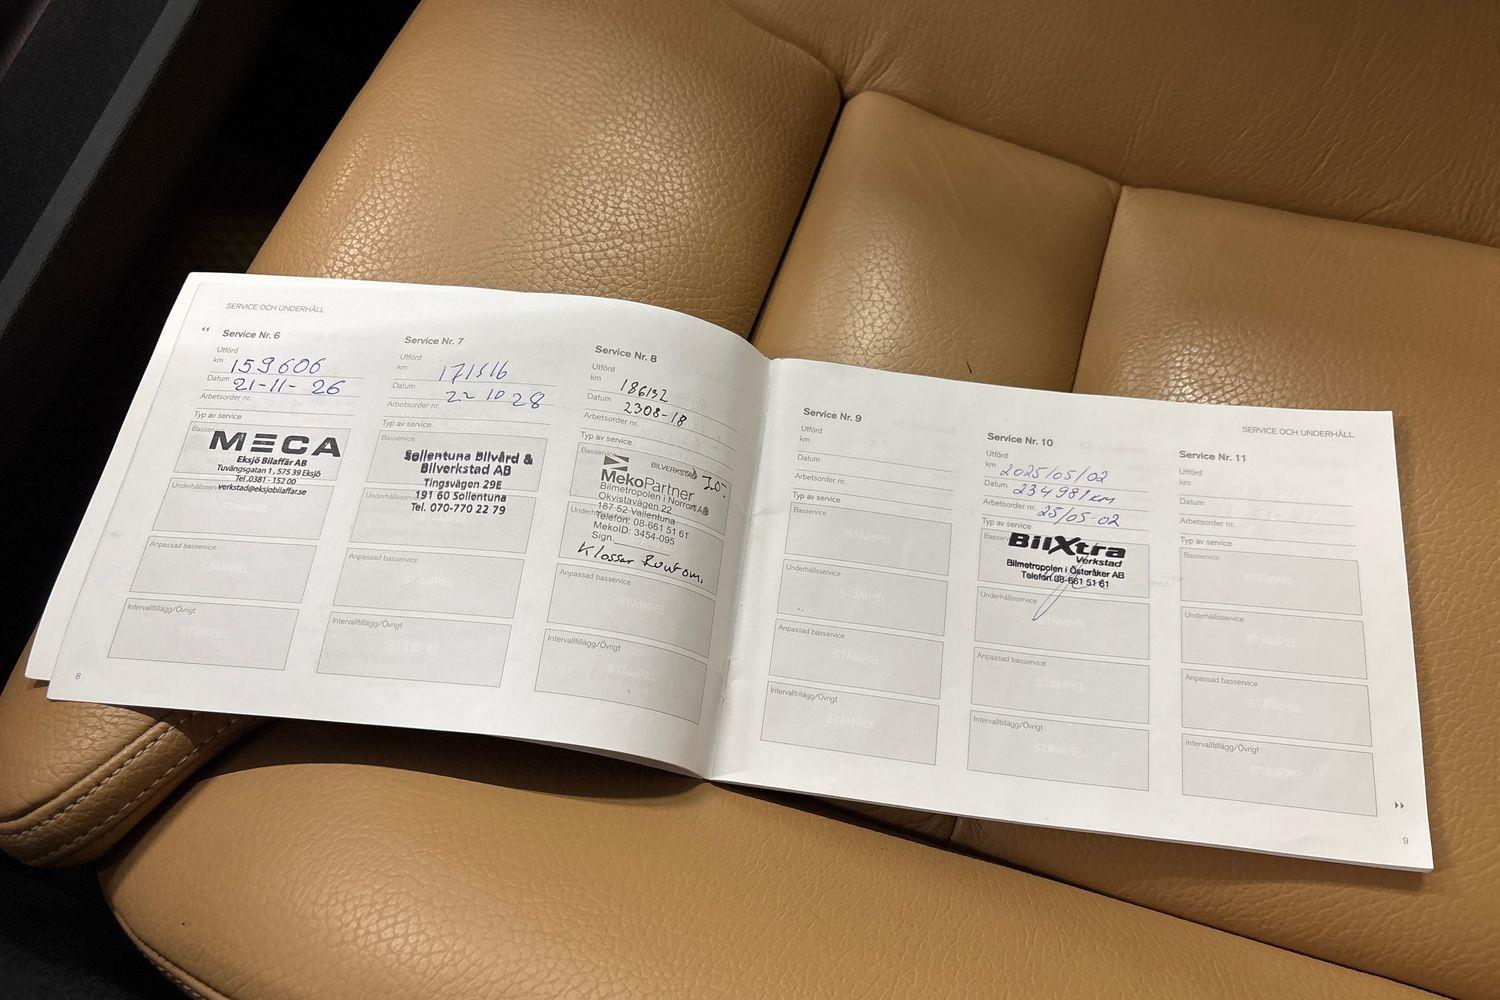 SERVICE OCH UNDERHÅLL
Service Nr. 6
Utförd
km 159606
Datum 21-11-26
Arbetsorder nr.
Typ av service
Basservice
MECA
Eksjö Bilaffär AB
Tuvängsgatan 1, 575 39 Eksjö
Tel 0381 - 152 00
verkstad@eksjobilaffar.se
Underhållsservice
STÄMPEL
Anpassad basservice
STÄMPEL
Intervalltillägg/Övrigt
STÄMPEL
8
Service Nr. 7
Utförd
km 171516
Datum 22 10 28
Arbetsorder nr.
Typ av service
Basservice
Sollentuna Bilvård &
Bilverkstad AB
Tingsvägen 29E
191 60 Sollentuna
Tel. 070-770 22 79
Underhållsservice
Anpassad basservice
STÄMPEL
Intervalltillägg/Övrigt
STÄMPEL
Service Nr. 8
Utförd
km 186132
Datum 2308-18
Arbetsorder nr.
Typ av service
Basservice
BILVERKSTAD
MekoPartner
Bilmetropolen i Norrort AB
Okvistavägen 22
187 52 Vallentuna
Telefon: 08-661 51 61
MekoID: 3454-095
Sign.
Klossar Runtom.
Anpassad basservice
STÄMPEL
Intervalltillägg/Övrigt
STÄMPEL
Service Nr. 9
Utförd
km
Datum
Arbetsorder nr.
Typ av service
Basservice
STÄMPEL
Underhållsservice
STÄMPEL
Anpassad basservice
STÄMPEL
Intervalltillägg/Övrigt
STÄMPEL
Service Nr. 10
Utförd
km 2025/05/02
Datum 234981km
Arbetsorder nr. 25/05-02
Typ av service
Basservice
BilXtra
Verkstad
Bilmetropolen i Österåker AB
Telefon 08-661 51 61
Underhållsservice
STÄMPEL
Anpassad basservice
STÄMPEL
Intervalltillägg/Övrigt
STÄMPEL
SERVICE OCH UNDERHÅLL
Service Nr. 11
Utförd
km
Datum
Arbetsorder nr.
Typ av service
Basservice
STÄMPEL
Underhållsservice
STÄMPEL
Anpassad basservice
STÄMPEL
Intervalltillägg/Övrigt
STÄMPEL
9